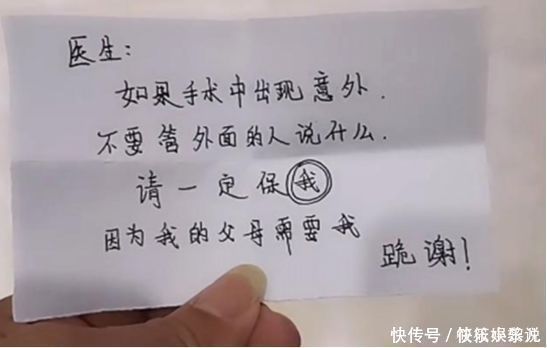 医生:
如果手术中出现意外.
不要管外面的人说什么.
请一定保我
因为我的父母需要我
跪谢!
快传号/筱筱娱影说